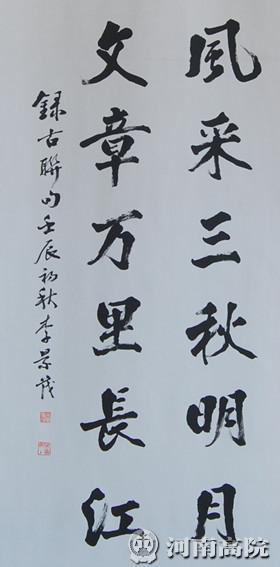 風采三秋明月
文章万里長江
録古聯句壬辰初秋李景茂
河南高院